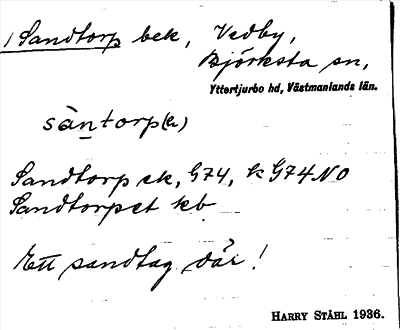 1 Sandtorp bek, Vedby,
Björksta sn,
Yttertjurbo hd, Västmanlands län.
sàntorp(ə)
Sandtorp ek, G74, k G74 NO
Sandtorpet kb
Ett sandtag där!
HARRY STÅHL 1936.